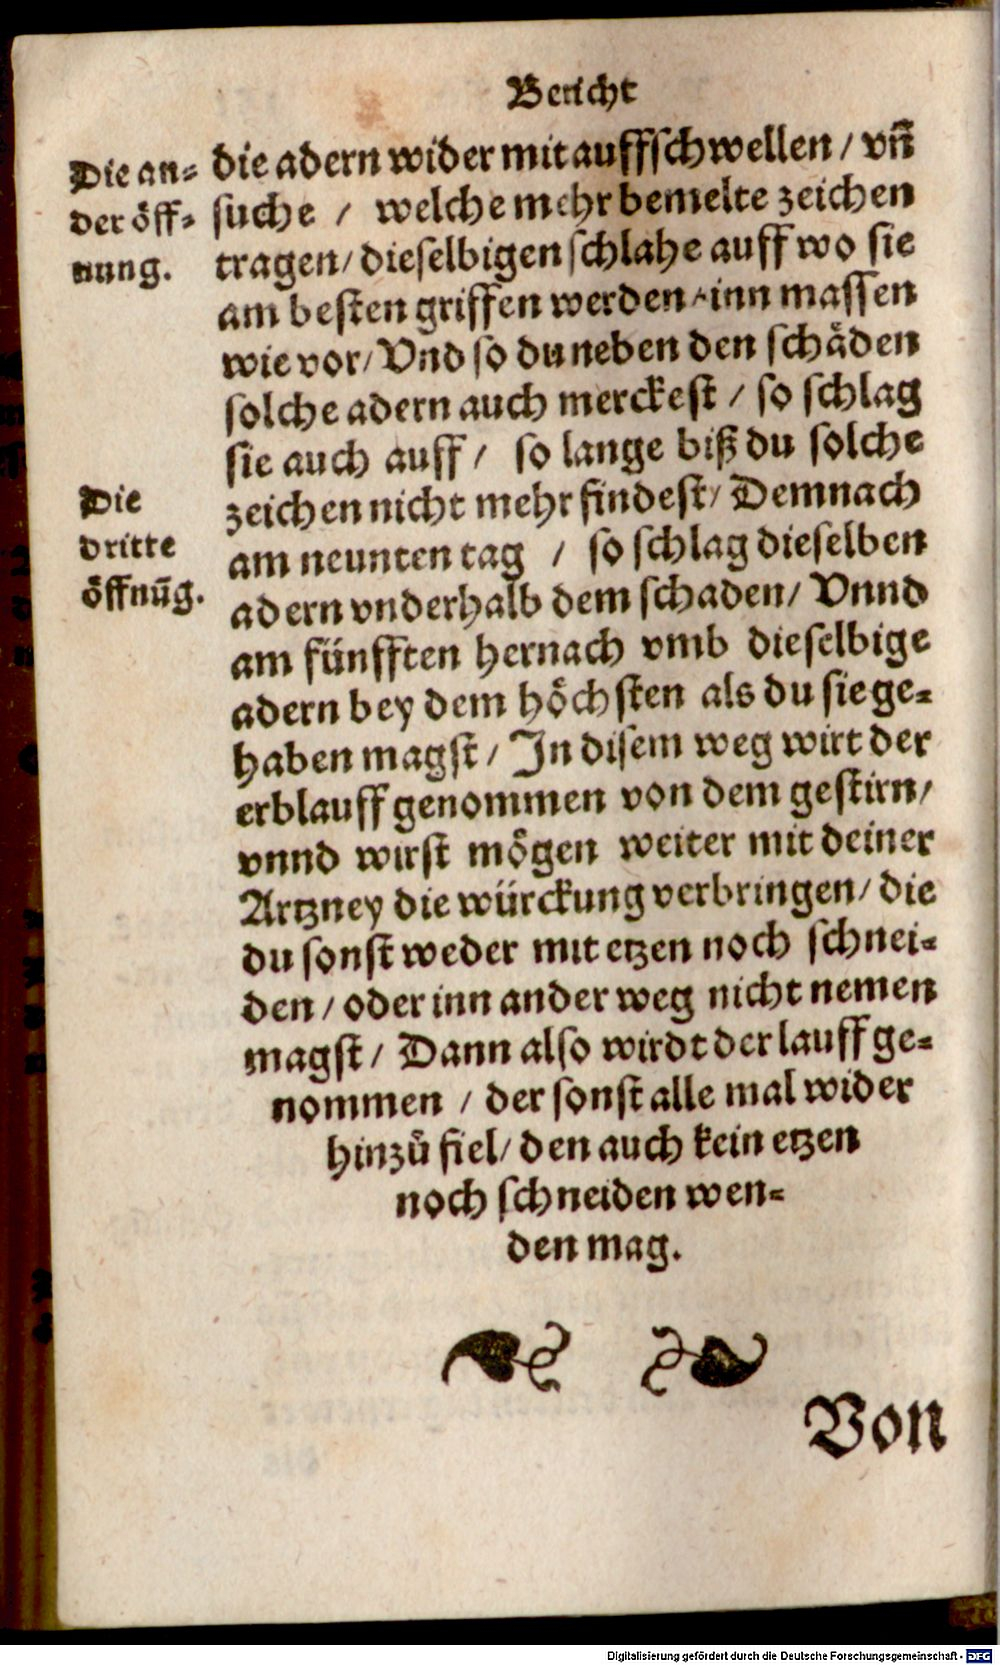 Bericht
Die an-
der öff-
nung.
die adern wider mit auffschwellen / vñ
suche / welche mehr bemelte zeichen
tragen / dieselbigen schlahe auff wo sie
am besten griffen werden / inn massen
wie vor / Vnd so du neben den schäden
solche adern auch merckest / so schlag
sie auch auff / so lange biß du solche
zeichen nicht mehr findest / Demnach
Die
dritte
öffnūg.
am neunten tag / so schlag dieselben
adern vnderhalb dem schaden / Vnnd
am fünfften hernach vmb dieselbige
adern bey dem höchsten als du sie ge-
haben magst / In disem weg wirt der
erblauff genommen von dem gestirn /
vnnd wirst mögen weiter mit deiner
Artzney die würckung verbringen / die
du sonst weder mit etzen noch schnei-
den / oder inn ander weg nicht nemen
magst / Dann also wirdt der lauff ge-
nommen / der sonst alle mal wider
hinzů fiel / den auch kein etzen
noch schneiden wen-
den mag.
Von
Digitalisierung gefördert durch die Deutsche Forschungsgemeinschaft - DFG